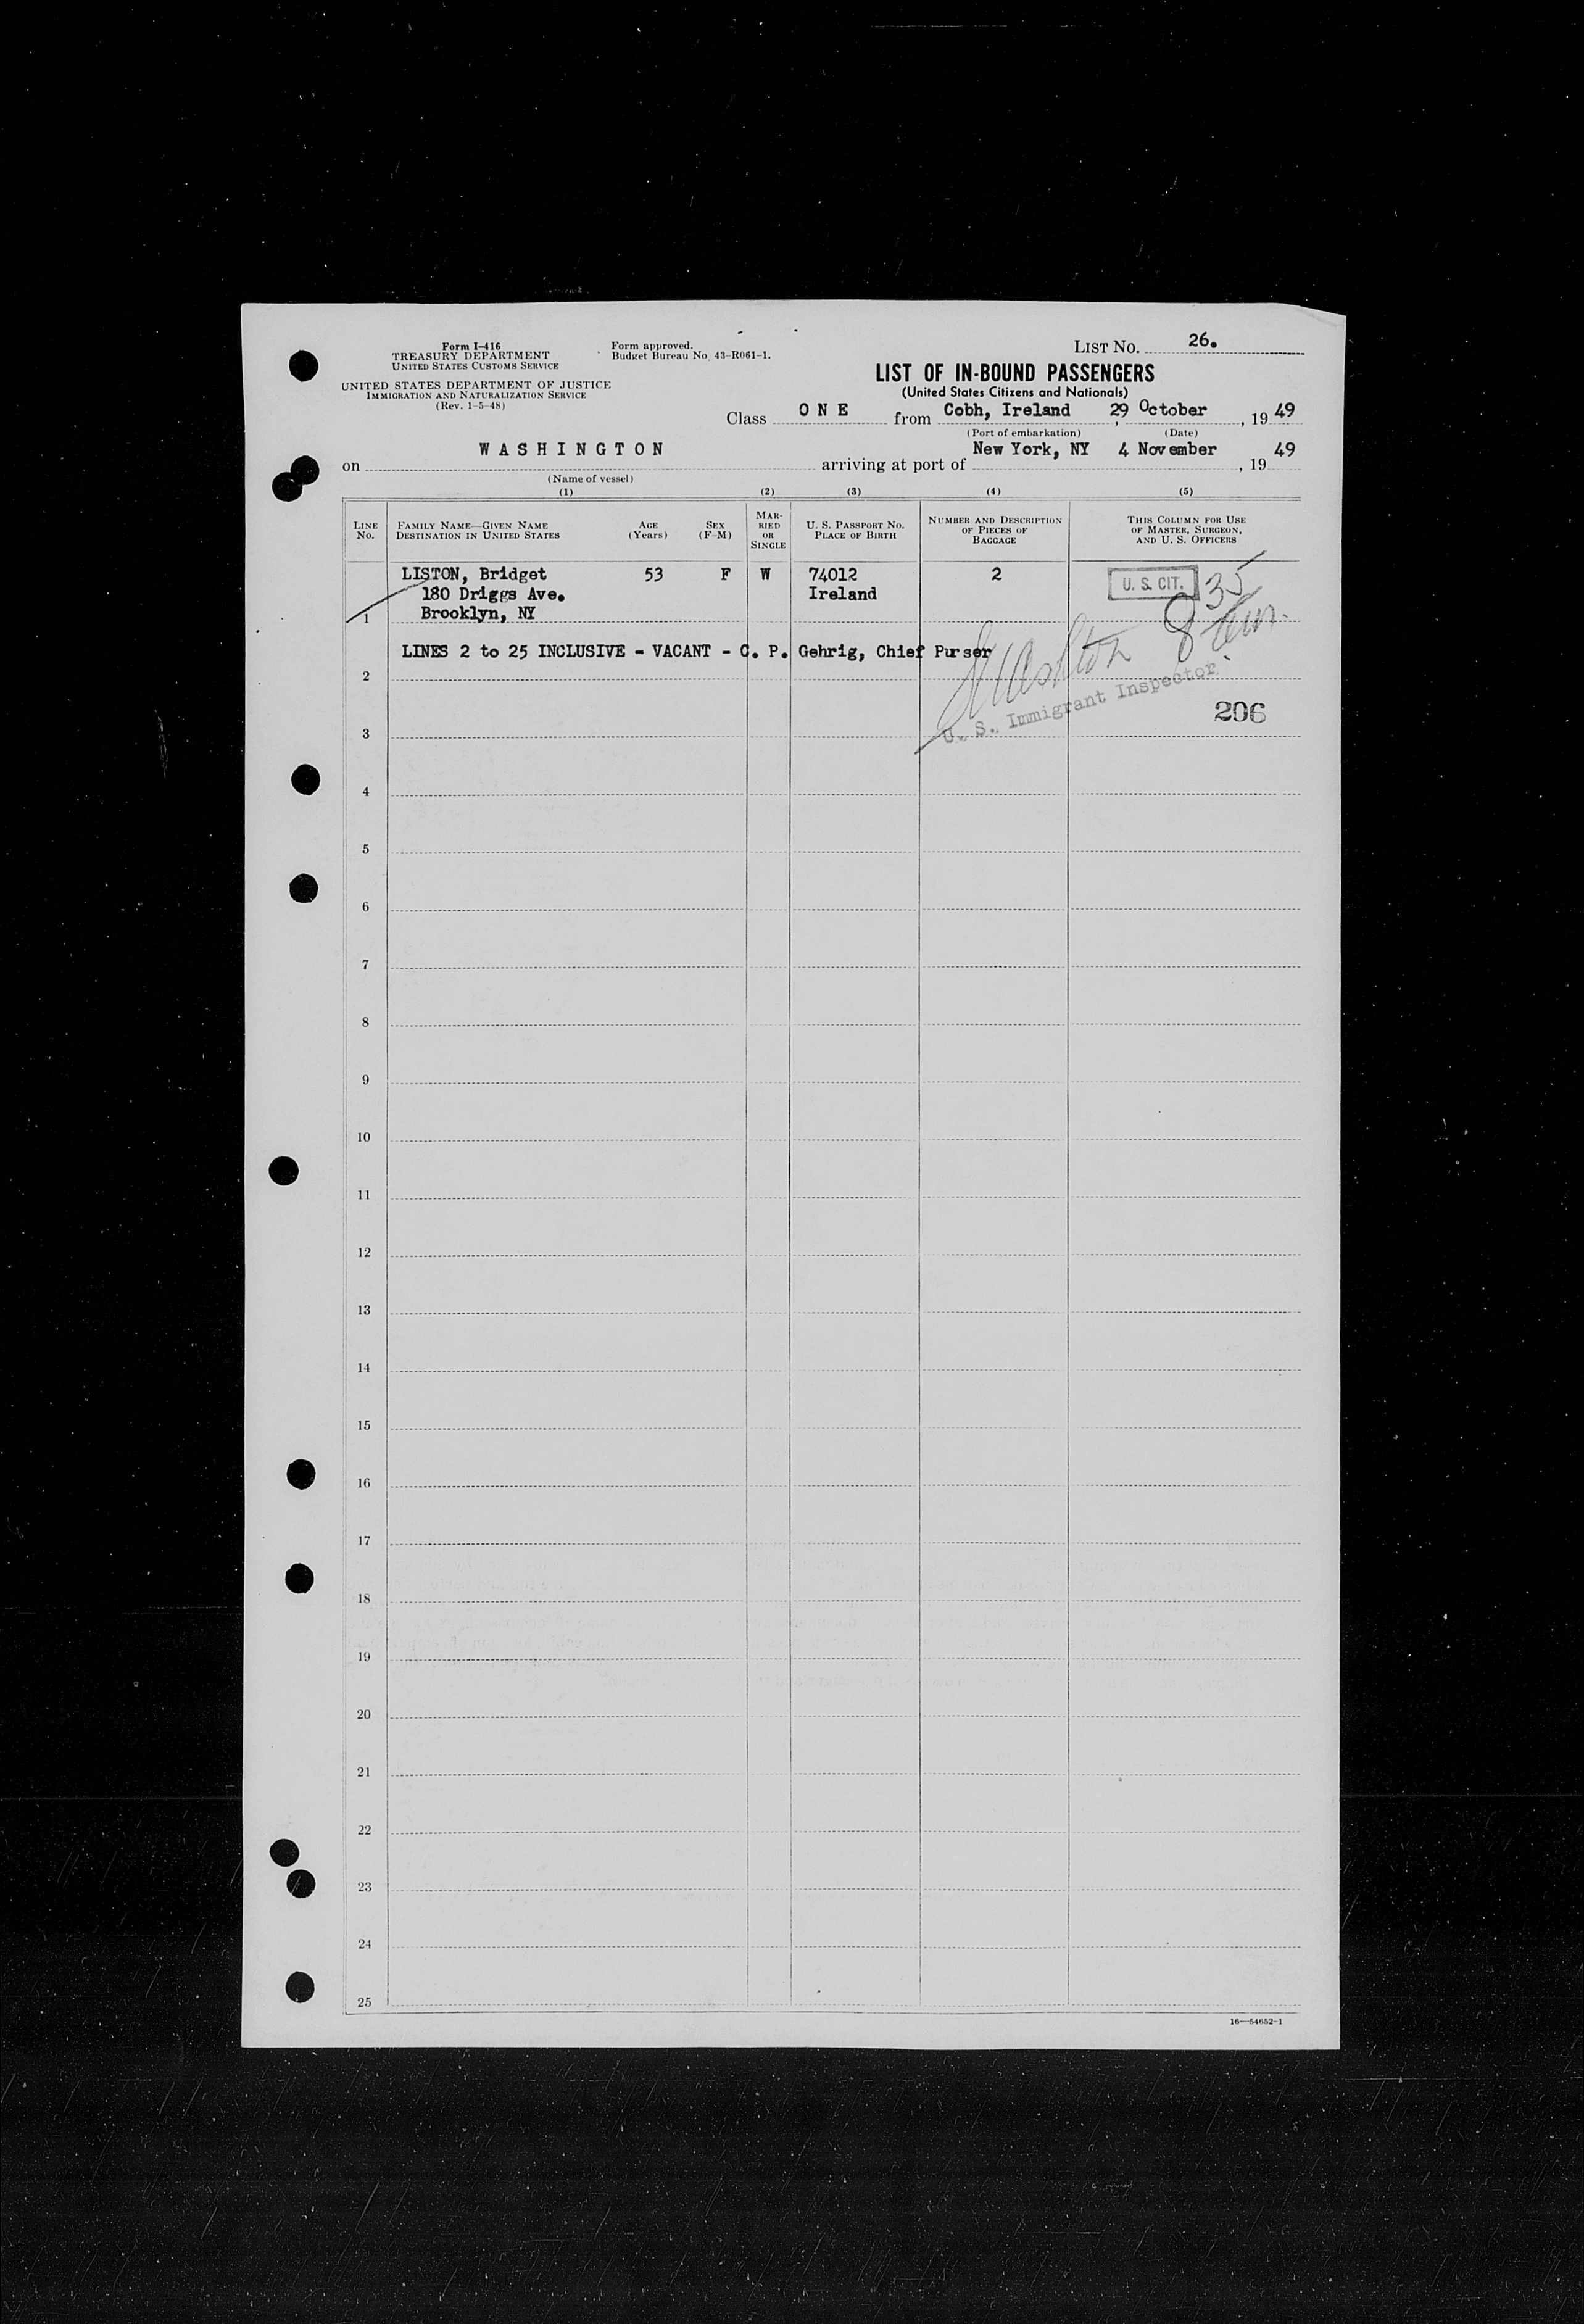 Form I-416
TREASURY DEPARTMENT
UNITED STATES CUSTOMS SERVICE
UNITED STATES DEPARTMENT OF JUSTICE
IMMIGRATION AND NATURALIZATION SERVICE
(Rev. 1-5-48)
Form approved.
Budget Bureau No. 43-R061-1.
LIST No. 26.
LIST OF IN-BOUND PASSENGERS
(United States Citizens and Nationals)
Class O N E from Cobh, Ireland , 29 October , 19 49
(Port of embarkation) (Date)
on W A S H I N G T O N arriving at port of New York, NY 4 November , 19 49
(Name of vessel)
(1) (2) (3) (4) (5)
LINE No. FAMILY NAME—GIVEN NAME DESTINATION IN UNITED STATES AGE (Years) SEX (F-M) MARRIED OR SINGLE U. S. PASSPORT No. PLACE OF BIRTH NUMBER AND DESCRIPTION OF PIECES OF BAGGAGE THIS COLUMN FOR USE OF MASTER, SURGEON, AND U. S. OFFICERS
LISTON, Bridget 53 F W 74012 2 U. S. CIT. 35
180 Driggs Ave. Ireland
1 Brooklyn, NY 8
LINES 2 to 25 INCLUSIVE - VACANT - C. P. Gehrig, Chief Purser
2
U. S. Immigrant Inspector.
206
3
4
5
6
7
8
9
10
11
12
13
14
15
16
17
18
19
20
21
22
23
24
25
16—54652-1